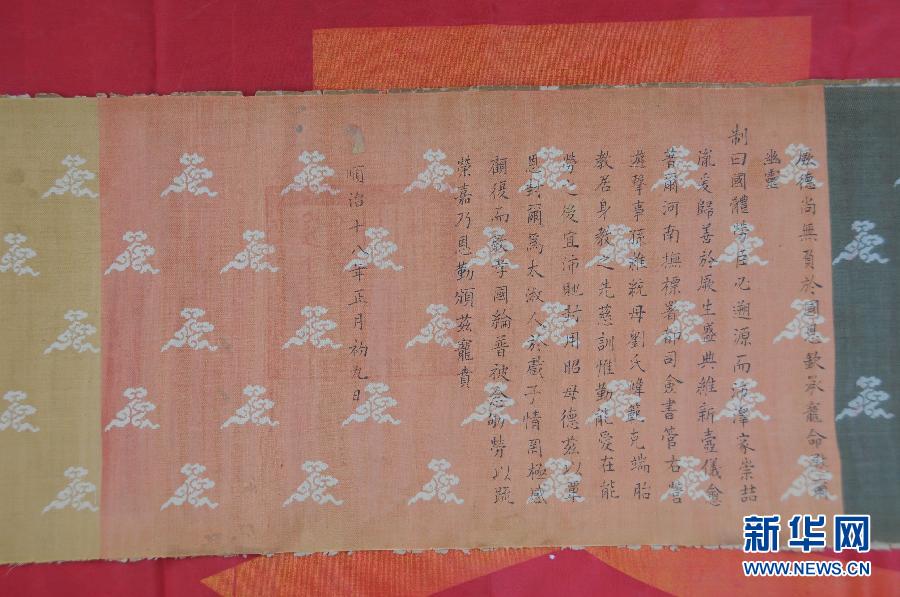 厥德尚無負於國恩欽承寵命慰
幽靈
制曰國體勞臣必遡源而沛澤家崇喆
胤爰歸善於厥生盛典維新壼儀愈
著爾河南撫標署都司僉書管右營
遊擊事孫維統母劉氏嶂範克端胎
教居身教之先慈訓惟勤能愛在能
勞之後宜沛貤封用昭母德茲以覃
恩封爾為太淑人於戲子情罔極感
顧復而敦孝國綸普被念劬勞以疏
榮嘉乃恩勤頒茲寵賁
順治十八年正月初九日
新华网
WWW.NEWS.CN